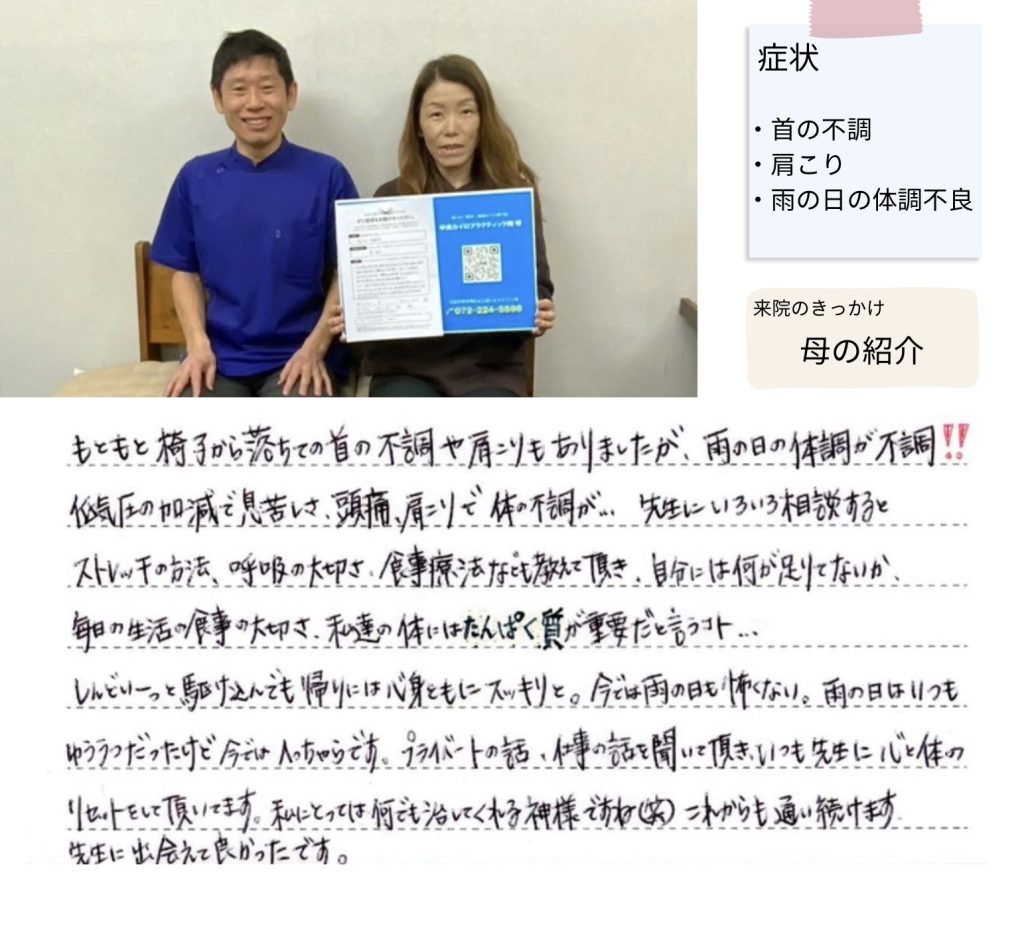 症状
・首の不調
・肩こり
・雨の日の体調不良
来院のきっかけ
母の紹介
072-224-5596
もともと椅子から落ちての首の不調や肩こりもありましたが、雨の日の体調が不調!!
低気圧の加減で息苦しさ、頭痛、肩こりで体の不調が… 先生にいろいろ相談すると
ストレッチの方法、呼吸の大切さ、食事療法なども教えて頂き、自分には何が足りてないか、
毎日の生活の食事の大切さ、私達の体にはたんぱく質が重要だと言うコト…
しんどいーっと駆け込んでも帰りには心身ともにスッキリと。今では雨の日も怖くない。雨の日はいつも
ゆううつだったけど今ではへっちゃらです。プライベートの話、仕事の話を聞いて頂き、いつも先生に心と体の
リセットをして頂いてます。私にとっては何でも治してくれる神様ですね(笑)これからも通い続けます
先生に出会えて良かったです。